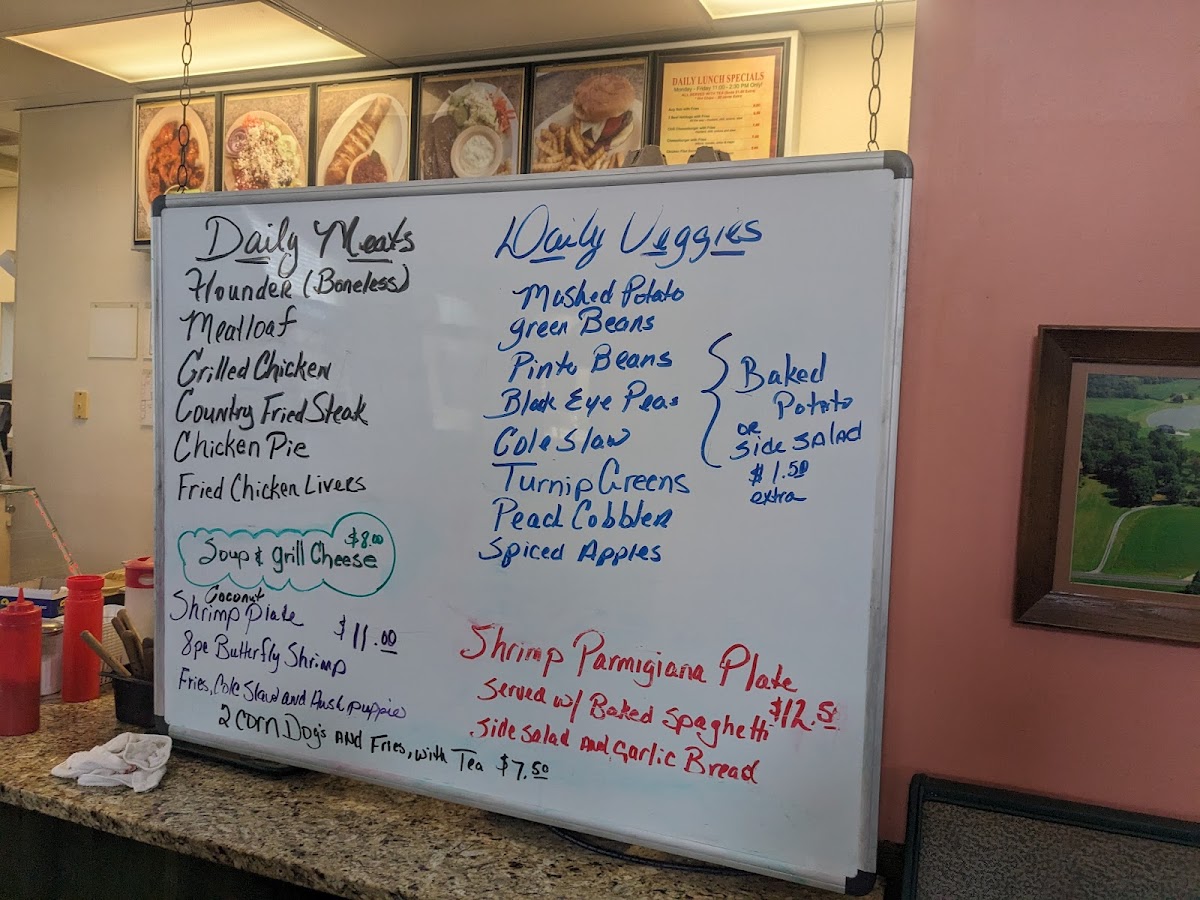 DAILY LUNCH SPECIALS
Monday - Friday 11:00 - 2:30 PM Only!
Daily Meats
Flounder (Boneless)
Meatloaf
Grilled Chicken
Country Fried Steak
Chicken Pie
Fried Chicken Livers
$8.00
Soup & grill Cheese
Coconut
Shrimp Plate $11.00
8pc Butterfly Shrimp
Fries, Cole Slaw and Hushpuppie
2 Corn Dogs AND Fries, with Tea $7.50
Daily Veggies
Mashed Potato
green Beans
Pinto Beans
Black Eye Peas
Cole Slaw
Turnip Greens
Peach Cobbler
Spiced Apples
Baked
Potato
OR
Side SALAD
$1.50
extra
Shrimp Parmigiana Plate
Served w/ Baked Spaghetti $12.50
Side Salad and Garlic Bread